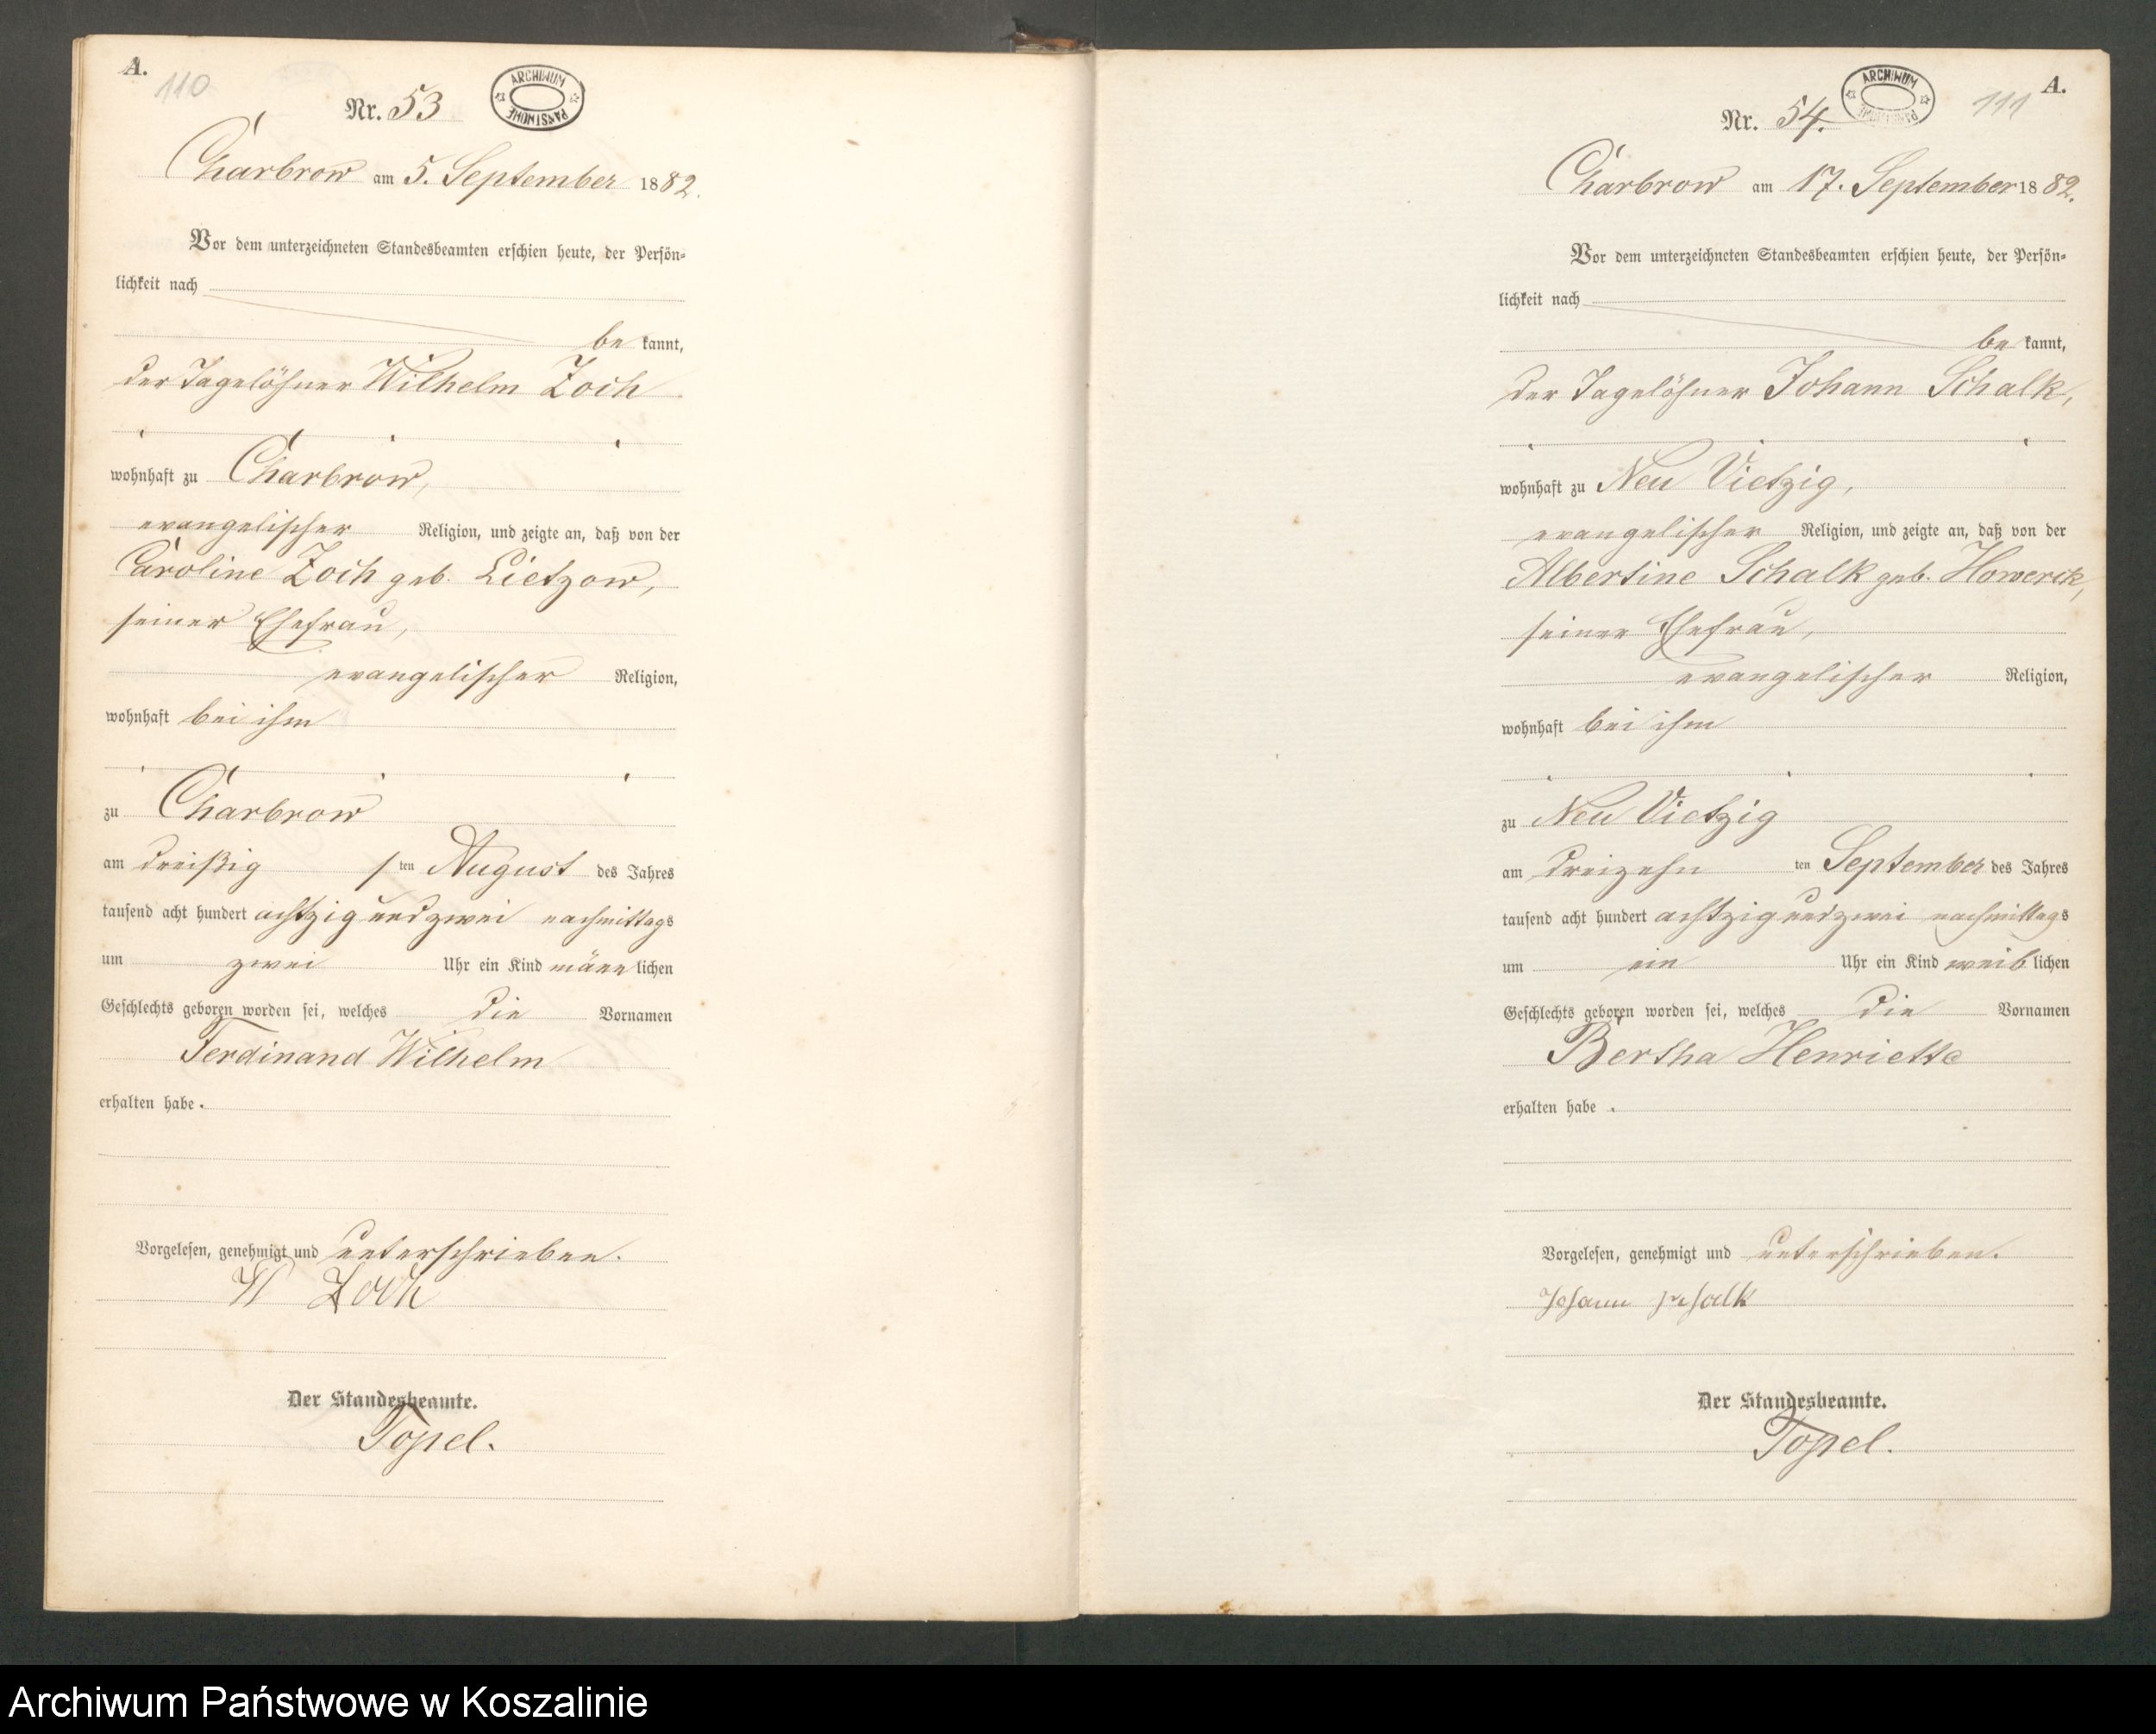 A.
110
Nr. 53
ARCHIWUM PAŃSTWOWE
Charbrow am 5. September 1882.
Vor dem unterzeichneten Standesbeamten erschien heute, der Persön-
lichkeit nach
be kannt,
der Tagelöhner Wilhelm Zoch
wohnhaft zu Charbrow,
evangelischer Religion, und zeigte an, daß von der
Caroline Zoch geb. Lietzow,
seiner Ehefrau,
evangelischer Religion,
wohnhaft bei ihm
zu Charbrow
am dreißig sten August des Jahres
tausend acht hundert achtzig und zwei nachmittags
um zwei Uhr ein Kind männlichen
Geschlechts geboren worden sei, welches die Vornamen
Ferdinand Wilhelm
erhalten habe.
Vorgelesen, genehmigt und unterschrieben.
W Zoch
Der Standesbeamte.
Topel.
A.
111
Nr. 54.
ARCHIWUM PAŃSTWOWE
Charbrow am 17. September 1882.
Vor dem unterzeichneten Standesbeamten erschien heute, der Persön-
lichkeit nach
be kannt,
der Tagelöhner Johann Schalk,
wohnhaft zu Neu Vietzig,
evangelischer Religion, und zeigte an, daß von der
Albertine Schalk geb. Howerck,
seiner Ehefrau,
evangelischer Religion,
wohnhaft bei ihm
zu Neu Vietzig
am dreizehn ten September des Jahres
tausend acht hundert achtzig und zwei nachmittags
um ein Uhr ein Kind weiblichen
Geschlechts geboren worden sei, welches die Vornamen
Bertha Henriette
erhalten habe.
Vorgelesen, genehmigt und unterschrieben.
Johann Schalk
Der Standesbeamte.
Topel.
Archiwum Państwowe w Koszalinie